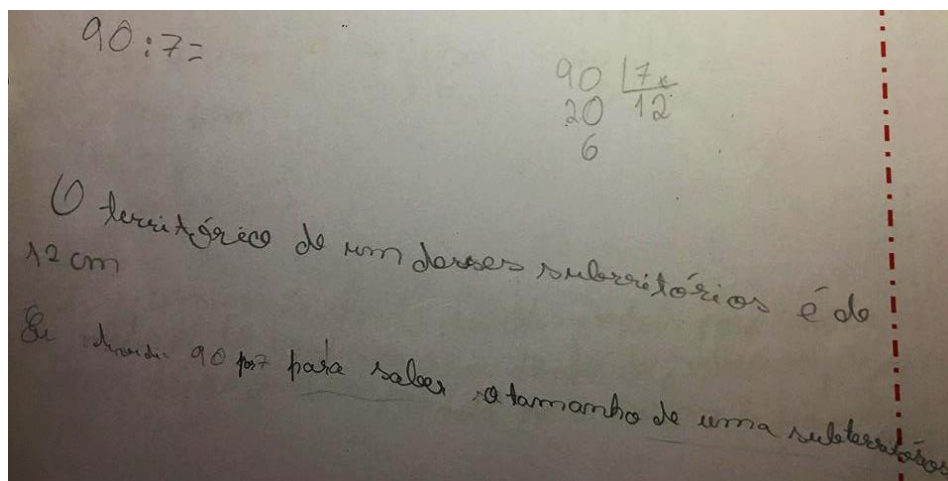 90:7=
90 7
20 12
6
O território de um desses subrritórios é de
12 cm
90 por 7 para saber o tamanho de uma subterritórios